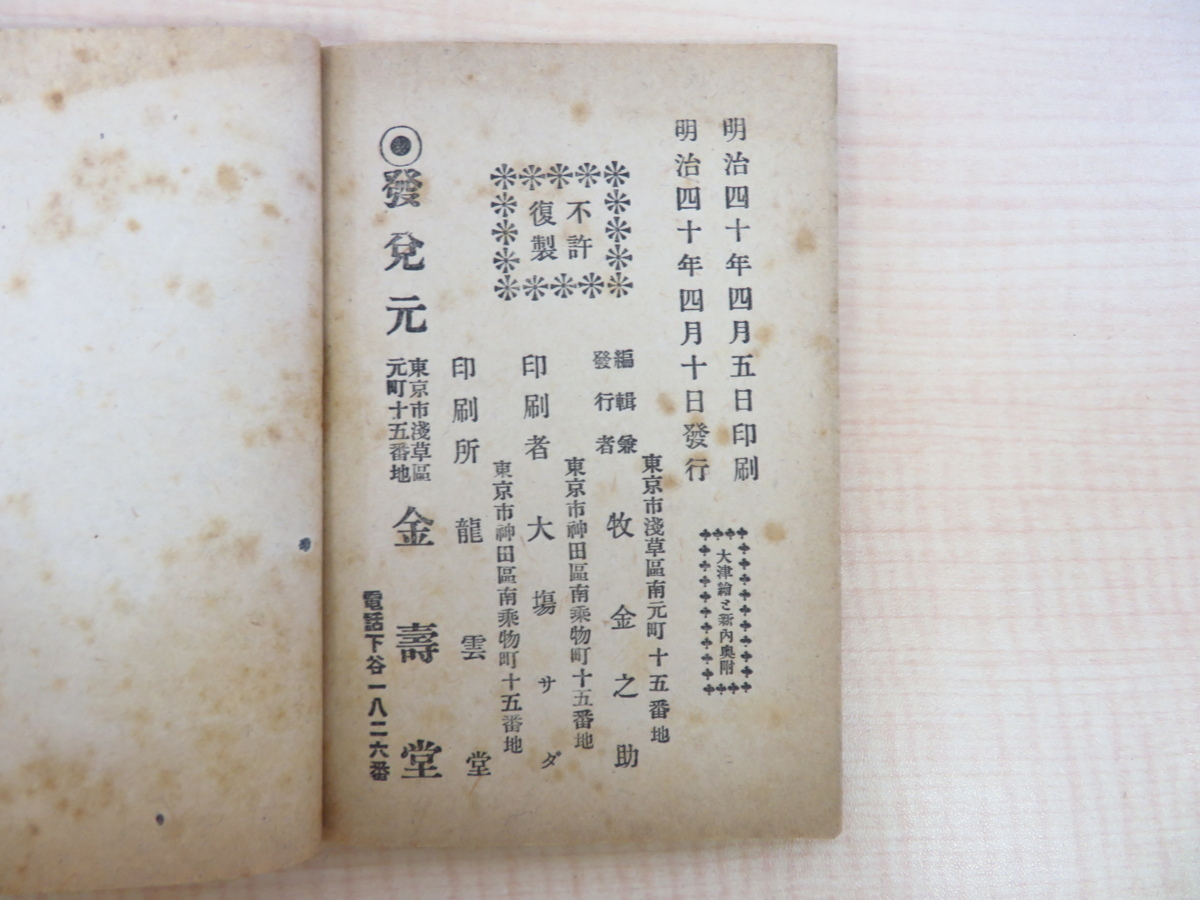 明治四十年四月五日印刷
明治四十年四月十日發行
大津繪と新内奧附
不許
復製
東京市淺草區南元町十五番地
編輯兼
發行者
牧金之助
東京市神田區南乘物町十五番地
印刷者
大塲サダ
東京市神田區南乘物町十五番地
印刷所
龍雲堂
發兌元
東京市淺草區
元町十五番地
金壽堂
電話下谷一八二六番